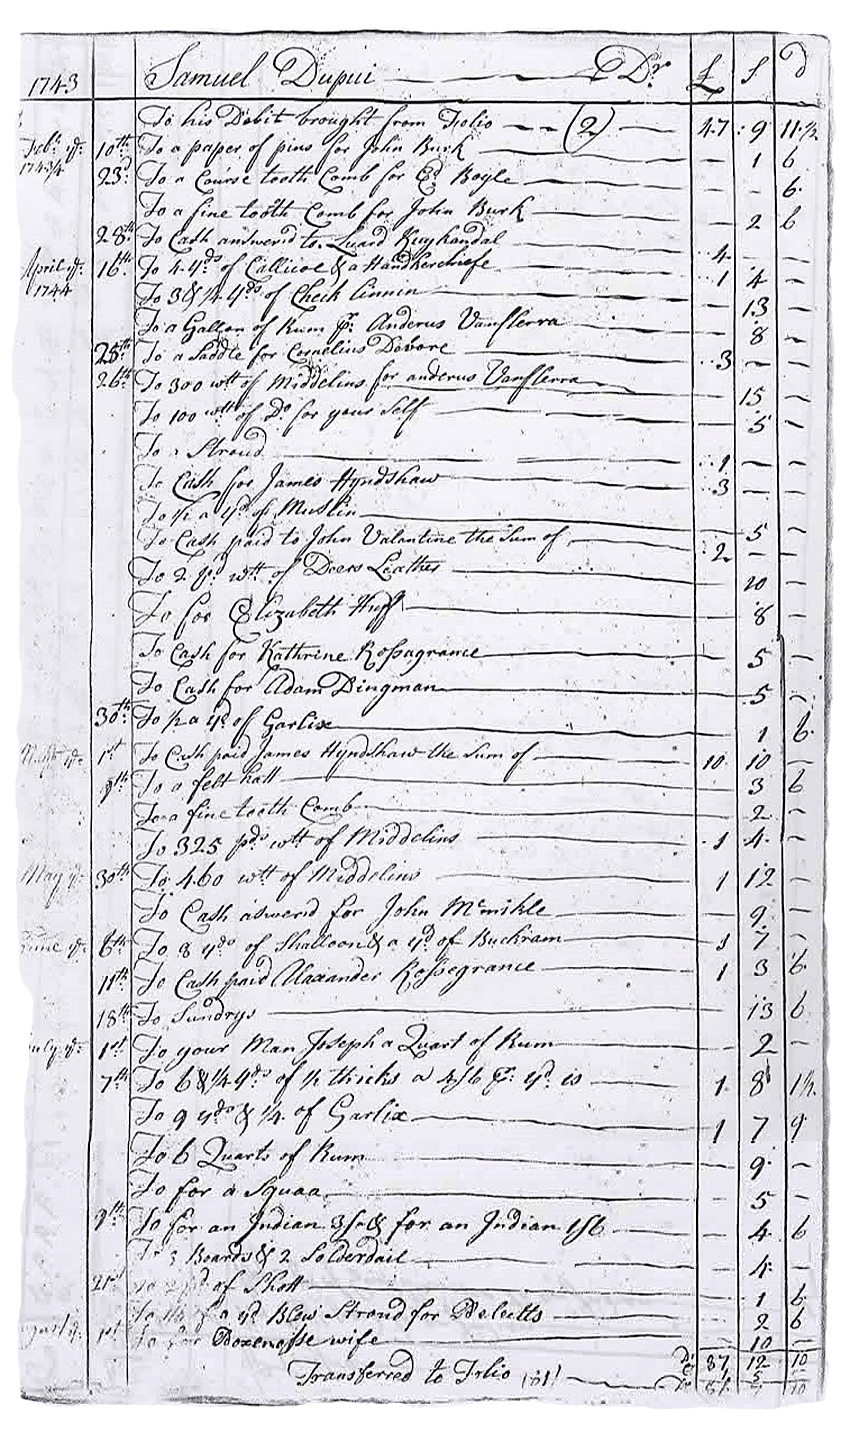 1743 Samuel Dupui Dr £ s d
To his Debit brought from Folio (2) 47 : 9 11 ½
10th To a paper of pins for John Burk 1 6
1743/4 23d To a Course tooth Comb for Ed Boyle 6
To a fine tooth Comb for John Burk 2 6
28th To Cash answerd to Kuykandal 4 - -
April ye 16th To 4 yds of Callicoe & a Handkercheife 1 4 -
1744 To 3 & ¼ yds of Check linnin 13 -
To a Gallon of Rum pr Anderus Vanflerra 8 -
25th To a Saddle for Cornelius Devore 3 - -
26th To 300 wtt of Middelins for anderus Vanflerra 15 -
To 100 wtt of Do for your Self 5 -
To a Stroud 1 - -
To Cash for James Hyndshaw 3 - -
To ½ a yd of Muslin 5 -
To Cash paid to John Valentine the Sum of 2 - -
To 2 wtt of Deers Leather 10 -
To for Elizabeth Huff 8 -
To Cash for Kathrine Rossagrance 5 -
To Cash for Adam Dingman 5 -
30th To ½ a yd of Garlix 1 6
1st To Cash paid James Hyndshaw the Sum of 10 10 -
9th To a felt hatt 3 6
To a fine tooth Comb 2 -
To 325 pds wtt of Middelins 1 4 -
May ye 30th To 460 wtt of Middelins 1 12 -
To Cash aswerd for John Mcmikle 9 -
June ye 6th To 8 yds of Shalloon & a yd of Buckram 1 7 -
11th To Cash paid Alaxander Rossegrance 1 3 6
18th To Sundrys 13 6
July ye 1st To your Man Joseph a Quart of Rum 2 -
7th To 6 & ¼ yds of ½ thicks a 4/6 pr yd is 1 8 1½
To 9 yds & ¼ of Garlix 1 7 9
To 6 Quarts of Rum 9 -
To for a Squaa 5 -
9th To for an Indian 3/ & for an Indian 1/6 4 6
To 3 Boards & 2 Solderdail 4 -
21st To 2 pd of Shott 1 6
To of a yd Blew Stroud for Delectts 2 6
August ye 1st To for Boxenosse wife 10 -
87 12 10
Transferred to Folio 181